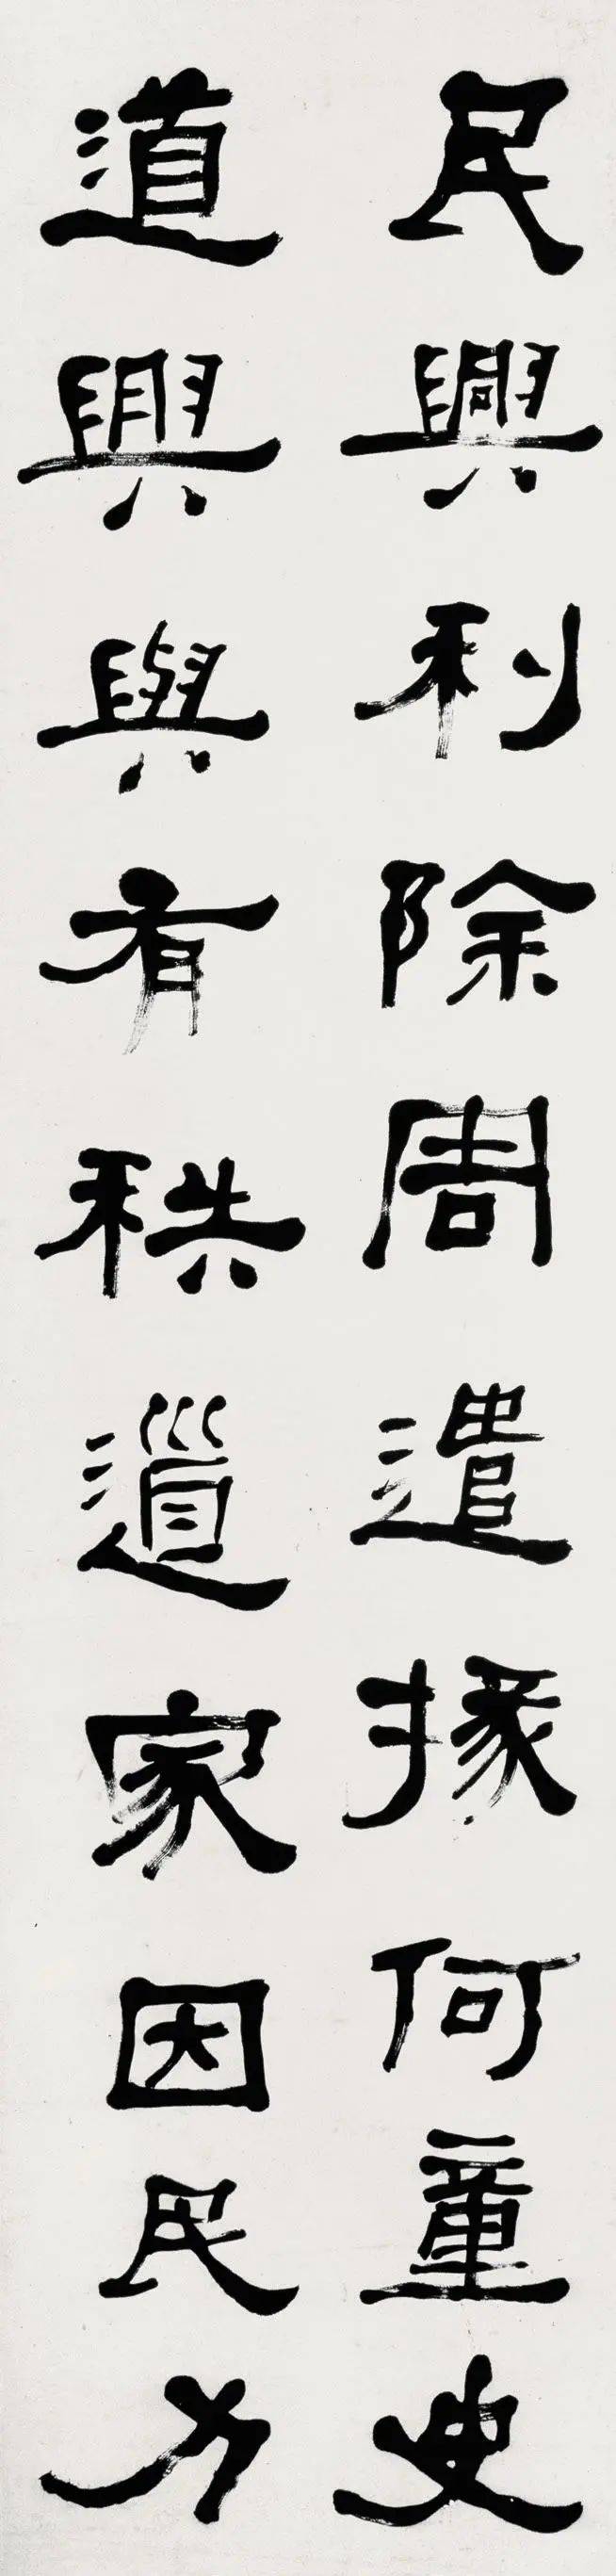 民興利除周遣掾何童史
道興與有秩道家因民力